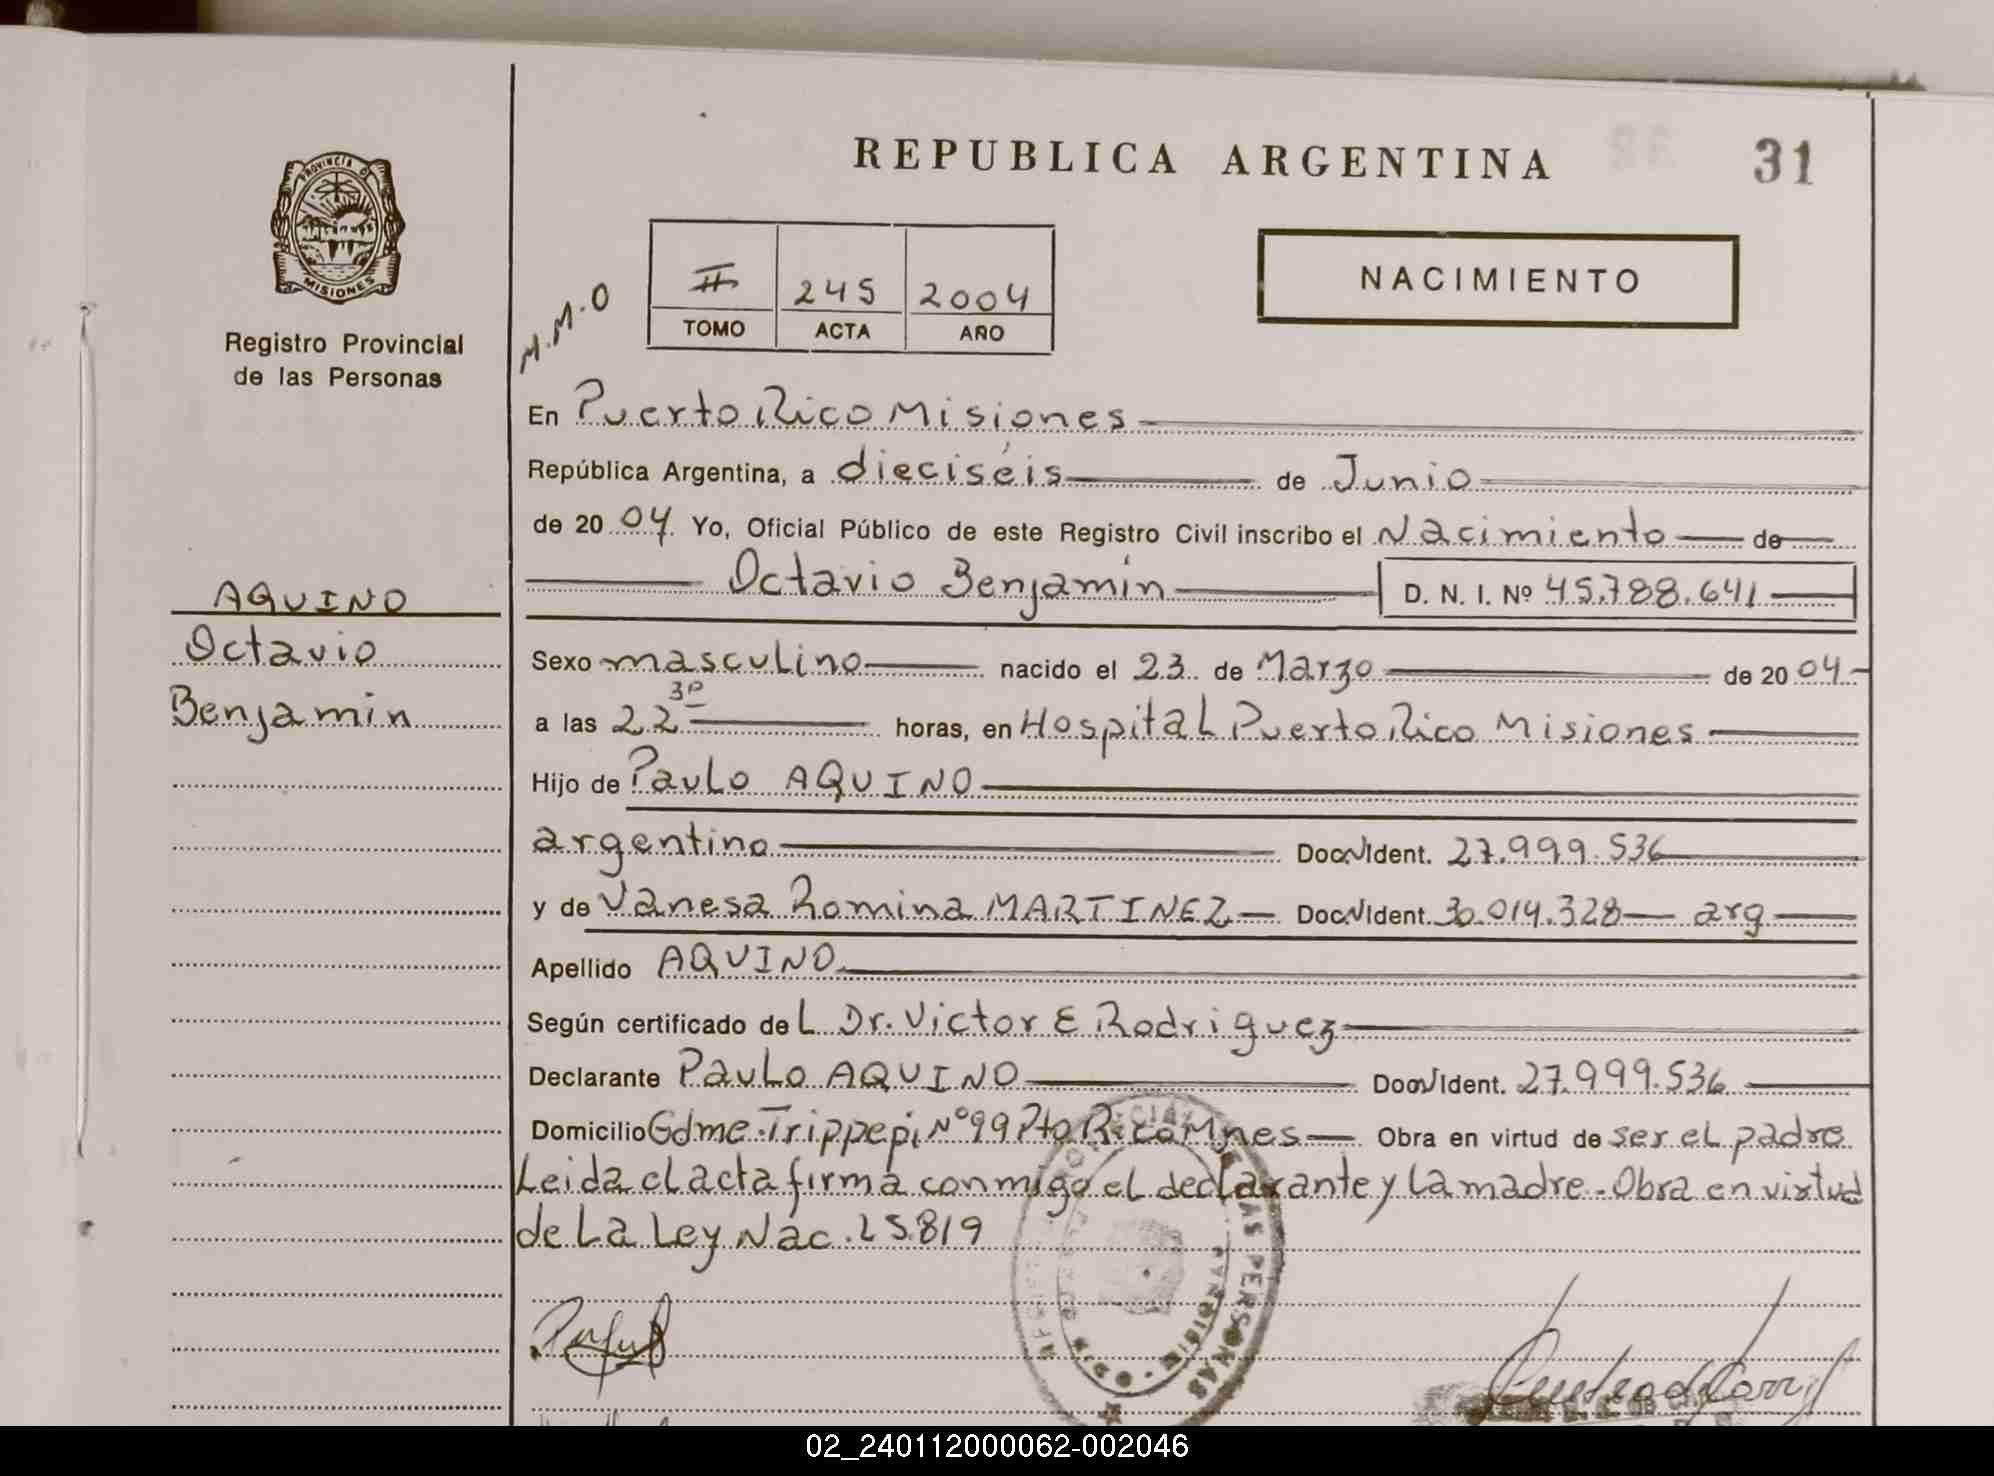 REPUBLICA ARGENTINA
31
PROVINCIA DE
MISIONES
Registro Provincial
de las Personas
M.M.O
II 245 2004
TOMO ACTA AÑO
NACIMIENTO
En Puerto Rico Misiones
República Argentina, a dieciséis de Junio
de 2004 Yo, Oficial Público de este Registro Civil inscribo el Nacimiento de
Octavio Benjamín D. N. I. Nº 45.788.641
AQUINO
Octavio
Benjamín
Sexo masculino nacido el 23 de Marzo de 2004
a las 22 30 horas, en Hospital Puerto Rico Misiones
Hijo de Paulo AQUINO
argentino Doc. Ident. 27.999.536
y de Vanesa Romina MARTINEZ Doc. Ident. 30.014.328 arg
Apellido AQUINO
Según certificado del Dr. Victor E Rodriguez
Declarante Paulo AQUINO Doc. Ident. 27.999.536
Domicilio Gdme. Trippepi Nº 99 Pto Rico Mnes Obra en virtud de ser el padre
Leida el acta firma conmigo el declarante y la madre. Obra en virtud
de La Ley Nac. 25.819
DE LAS PERSONAS
02_240112000062-002046